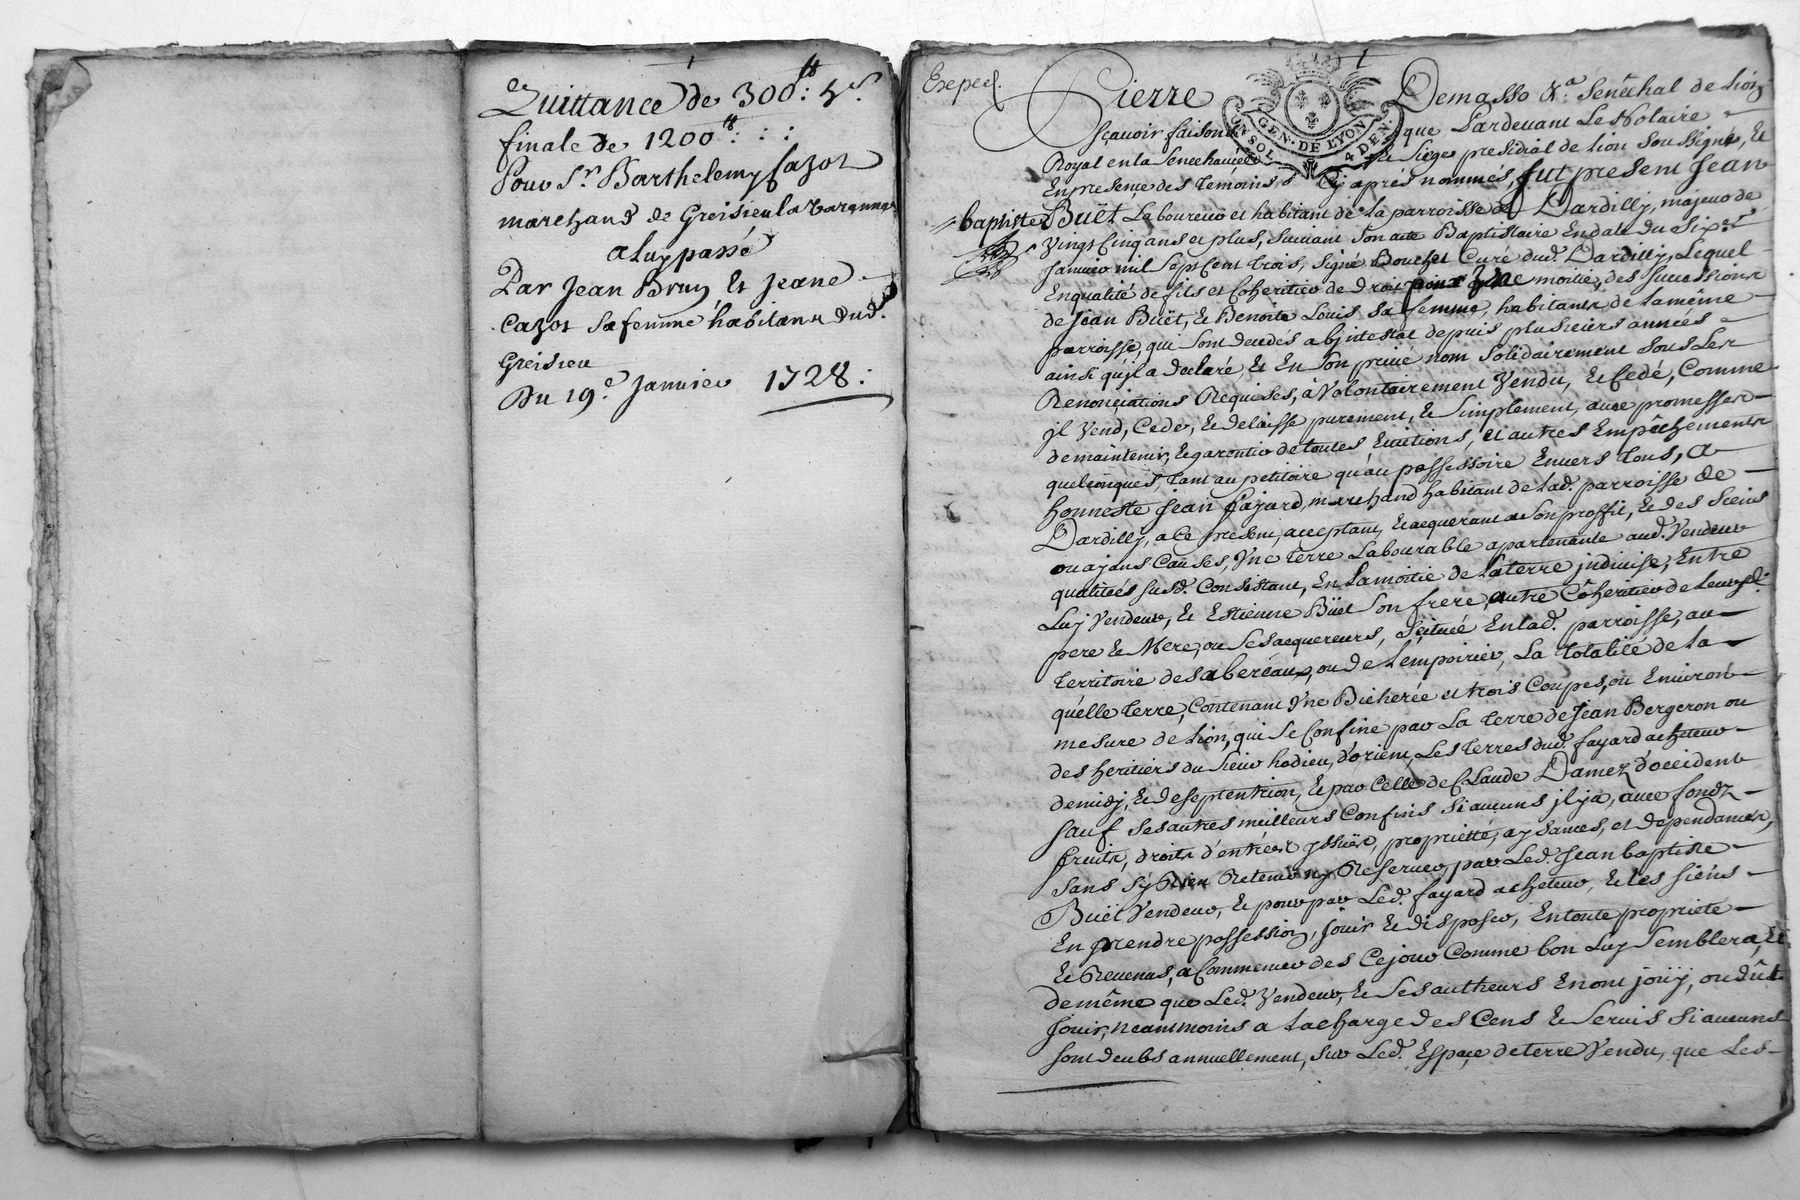 1
Quittance de 300:tt 5s.
finale de 1200tt : : :
Pour Sr. Barthelemy Cazot
marchand de Greisieu la varenne
a luy passé
Par Jean Brun Et Jeane
Cazot sa femme habitans dud.
Greisieu
Du 19.e Janvier 1728 :
1
Exped.
Pierre Demasso &.a Senéchal de Lion
GEN. DE LYON
UN SOL 4 DEN.
Sçavoir faisons que Pardevant Le Notaire
Royal en la Senechaucée et Siege presidial de Lion Soussigné, Et
En presence des temoins Cy aprés nommés, fut present Jean
baptiste Buët Laboureur et habitant de la parroisse de Dardilly, majeur de
Vingt Cinq ans et plus, Suivant Son acte Baptistaire En date du Six.e
Janvier mil Sept Cent trois, Signé Bouchet Curé dud. Dardilly, Lequel
En qualité de fils et Coheritier de droit pour Une moitié, des Successions
de Jean Buët, et Benoite Louis Sa femme, habitants de la même
parroisse, qui Sont decedés abjntestat depuis plusieurs années
ainsi qu'jl a declaré, Et En Son privé nom Solidairement Sous Les
Renonçiations Requises, a Volontairement Vendu, et Cedé, Comme
jl Vend, Cede, et delaisse purement, et Simplement, avec promesse
de maintenir, et garentir de toutes Evictions, et autres Empêchements
quelconques, tant au petitoire qu'au possessoire Envers tous, A
honneste Jean fayard, marchand habitant de lad. parroisse de
Dardilly, a ce present, acceptant, et acquerant a Son proffit, et des Siens
ou ayans Causes, Une terre Labourable apartenante aud. Vendeur
qualitées susd. Consistant, En La moitié de La terre jndivise, Entre
Luy Vendeur, et Estienne Buët Son frere, autre Coheritier de Leursd.
pere et Mere, ou Ses acquereurs, Située En lad. parroisse, au
territoire des abereaux, ou de Lempoirier, La totalité de la
quelle terre, Contenant Une Bicherée et trois Coupes, ou Environ
mesure de Lion, qui Se Confine par La terre de Jean Bergeron ou
des heritiers du Sieur hodieu, d'orient, Les terres dud. fayard acheteur
de midy, et de Septentrion, et par Celle de Claude Damez d'occident
Sauf Ses autres meilleurs Confins Si aucuns jl y a, avec fondz
fruits, droits d'entrées yssües, proprietté, aysances, et dependances,
Sans Sy Rien Retenir ny Reserver par Led. Jean baptiste
Buët Vendeur, et pour par Led. fayard acheteur, et les Siens
En prendre possession, joüir et disposer, En toute proprieté
et Revenus, a Commencer des Ce jour Comme bon Luy Semblera, et
de même que Led. Vendeur, et Ses autheurs En ont joüy, ou dût
joüir, neammoins a La charge des Cens et Servis Si aucuns
sont deubs annuellement, Sur Led. Espaçe de terre Vendu, que Les